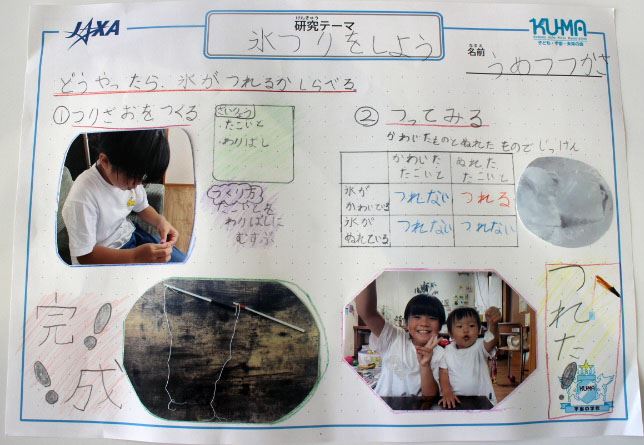 JAXA
けんきゅう
研究テーマ
氷つりをしよう
KUMA
子ども・宇宙・未来の会
なまえ
名前
うめつつかさ
どうやったら、氷がつれるかしらべる
①つりざおをつくる
ざいりょう
・たこいと
・わりばし
つくり方
たこいとを
わりばしに
むすぶ
②つってみる
かわいたものとぬれたものでじっけん
かわいたたこいと
ぬれたたこいと
氷がかわいている
つれない
つれる
氷がぬれている
つれない
つれない
完成!!
つれた!!
KUMA
宇宙の学校